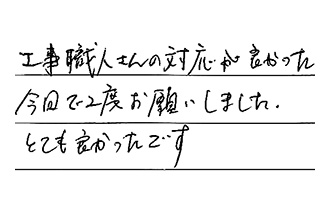 工事職人さんの対応が良かった
今回で2度お願いしました.
とても良かったです